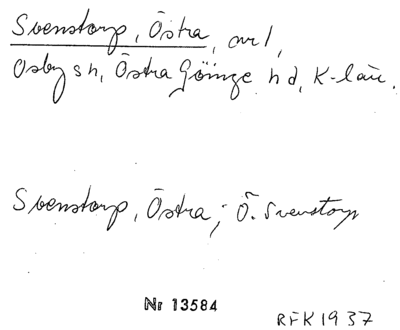 Svenstorp, Östra, avl,
Osby sn, Östra Göinge hd, K-län.
Svenstorp, Östra; Ö. Svenstorp
Nr 13584
RFK 1937